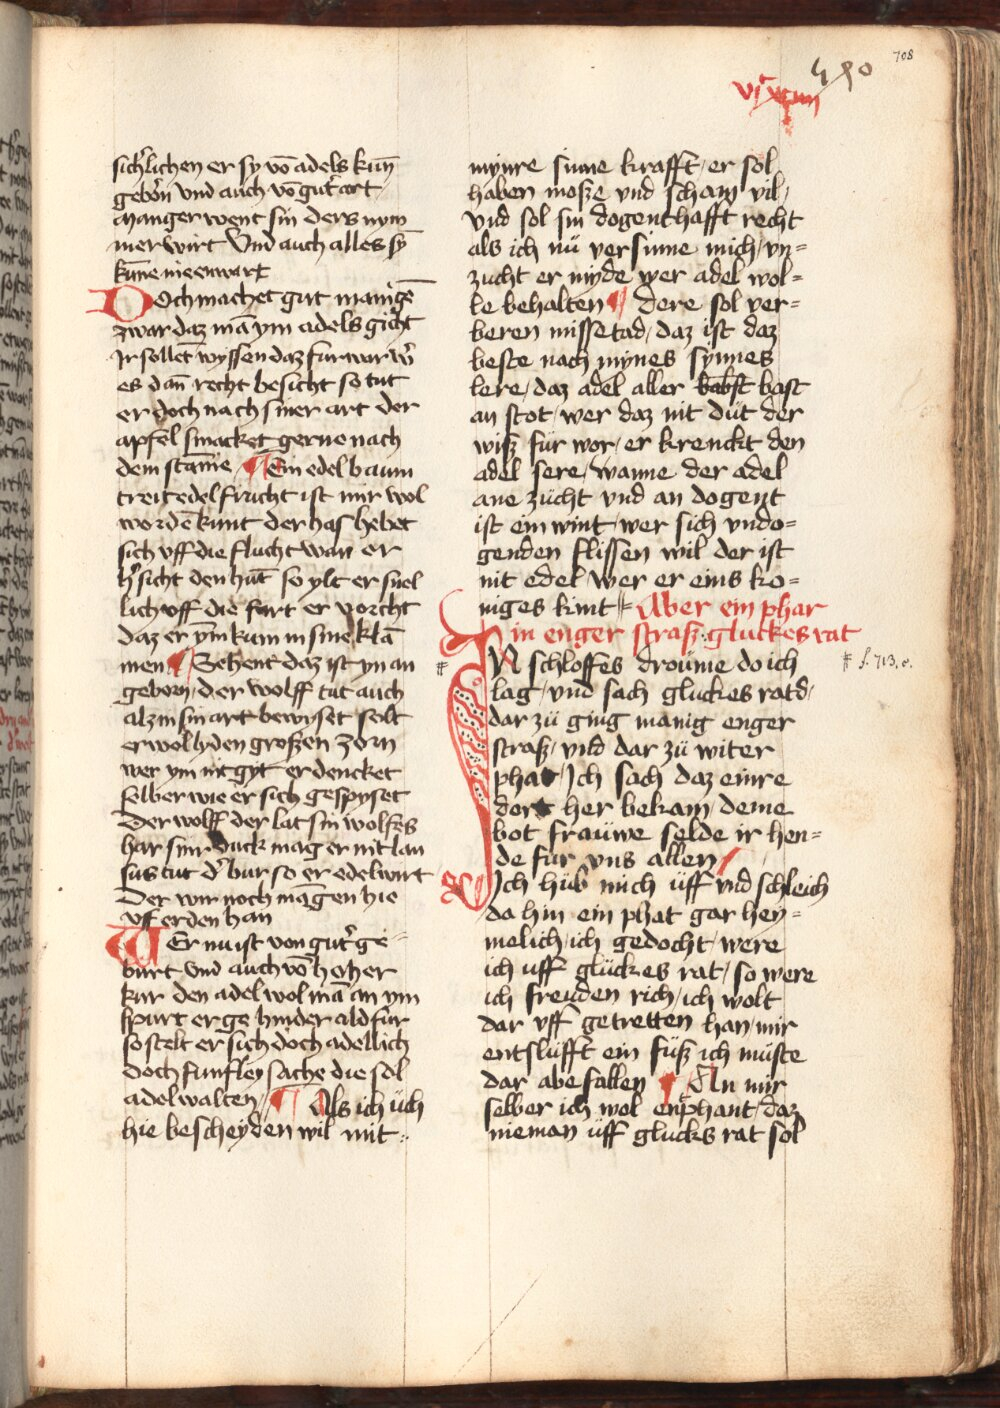 708
490
vjͨ xciiij
sich'lichen er sy vō adels kūn
gebōn vnd auch vō gut' art
manger went sin ders nym
mer wirt Vnd auch alles sȳ
kūne nie enwart
Doch machet gut manig'ē
zwar daz mā ym adels gicht
Ir sollet wyssen daz fur war w'
es dañ recht besicht so tut
er doch nach siner art der
apfel smacket gerne nach
dem stāme ¶ Ein edel baum
treit edel frucht ist mir wol
wordē kunt der has hebet
sich vff die flucht wan er
h' sicht den hūt so ylt er snel
lich vff die fart er vorcht
daz er ym kum in sine klā
men ¶ Sehent daz ist yn an
geborn / der wolff tut auch
alz in sin art bewyset selt
er wol lyden großen zorn
wer ym nit gyt er dencket
selber wie er sich gespyset
Der wolff der lat sin wolfes
har sinr duck mag er nit lan
sus tut d' bur so er edel wirt
Der wir noch māgen hie
vff erden han
Wer nu ist von gut' ge-
burt vnd auch vō hoher
kur den adel wol mā an ym
spurt er ge hinder ald fur
so stelt er sich doch adellich
doch funfley sache die sol
adel walten / ¶ Als ich üch
hie bescheyden wil mit
mynre sinne krafft / er sol
haben moße vnd scham vil /
vnd sol sin dogenthafft recht
als ich nü versinne mich / vn=
zucht er myde wer adel wol=
le behalten ¶ dere sol ver=
beren missetad / daz ist daz
beste nach mynes synnes
lere / daz adel aller babst bast
an stot / wer daz nit düt der
wiß für wor / er krenckt den
adel sere / wanne der adel
ane zücht vnd an dogent
ist ein wint / wer sich vndo=
genden flissen wil der ist
nit edel wer er eins ko=
niges kint Aber ein phar
in enger straß gluckes rat
IN schloffes droüme do ich
⸗ f. 713, v.
lag / vnd sach gluckes rad /
dar zü ging manig enger
straß / vnd dar zü witer
phat / Ich sach daz einre
dort her bekam deme
bot frauwe selde ir hen=
de für vns allen /
Ich hüb mich üff vnd schleich
da hin ein phat gar hey=
melich / ich gedocht / were
ich uff glückes rat / so were
ich freuden rich / ich wolt
dar vff getretten han / mir
entslüfft ein füß ich müste
dar abe fallen ¶ An mir
selber ich wol enphant / daz
nieman üff glucks rat sol